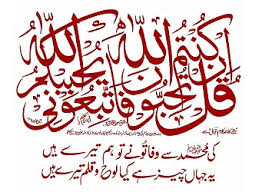 قل إن كنتم تحبون الله فاتبعوني يحببكم الله
کی محمدؐ سے وفا تو نے تو ہم تیرے ہیں
یہ جہاں چیز ہے کیا لوح و قلم تیرے ہیں